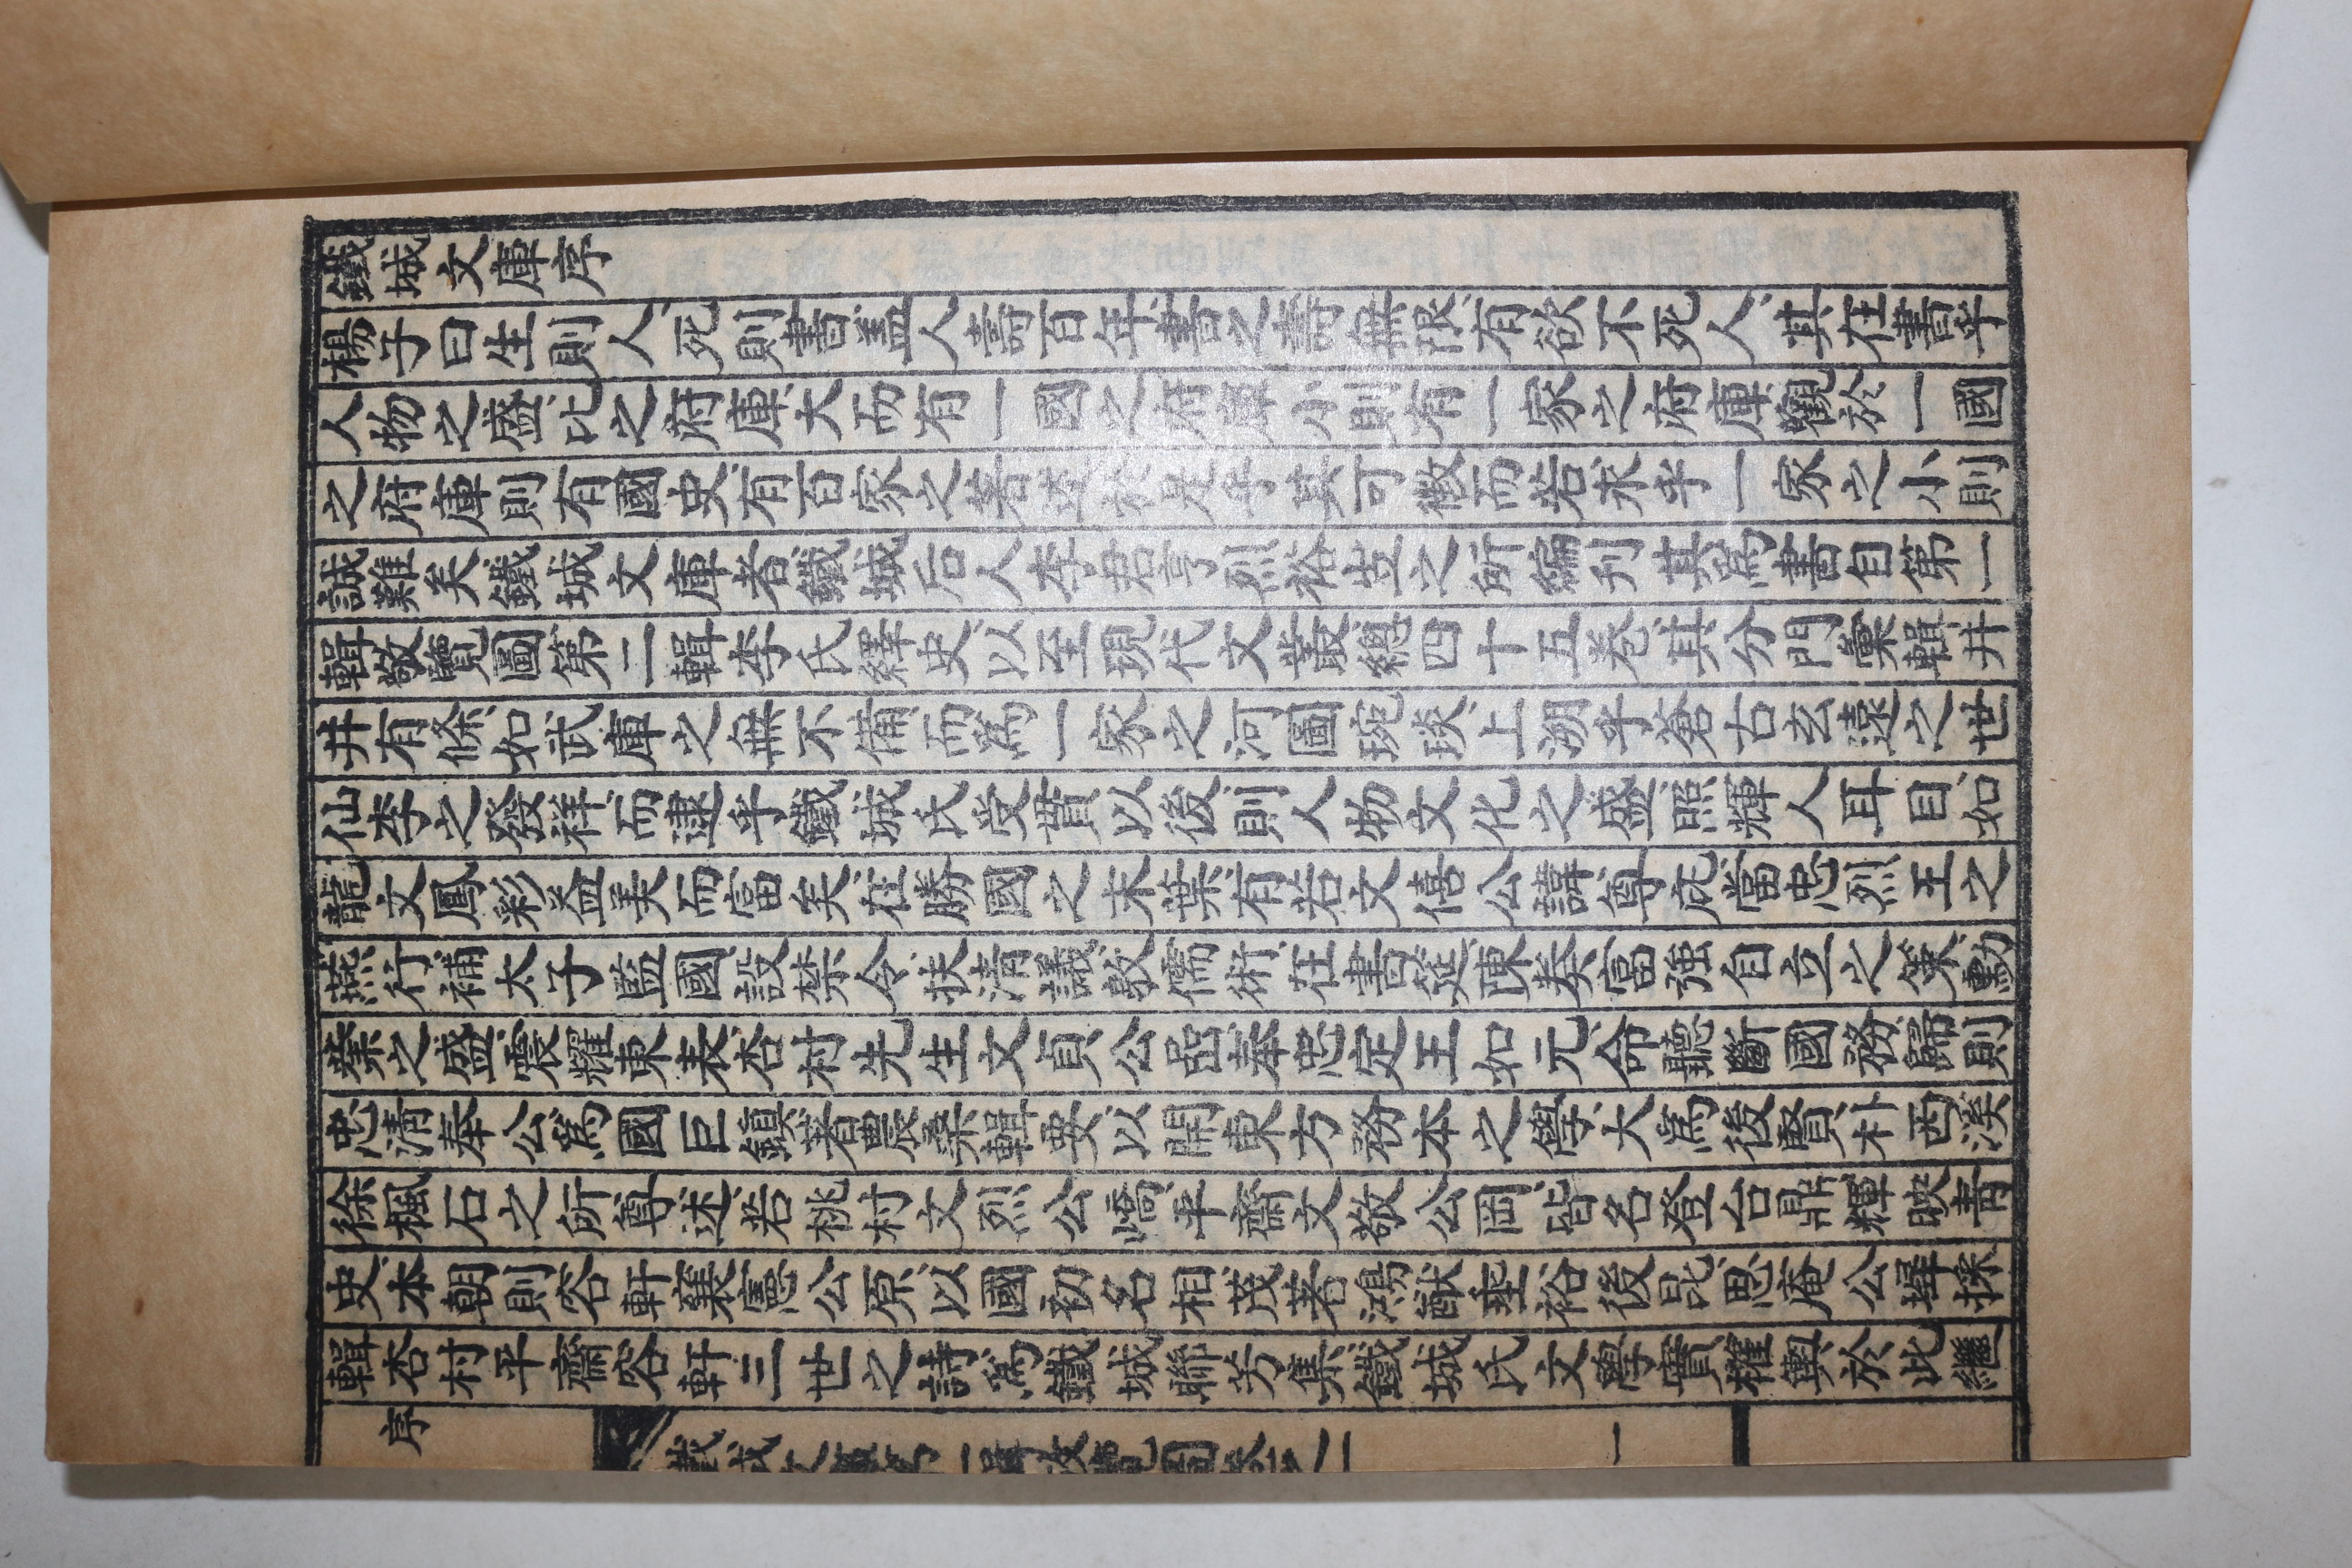 鐵城文庫序
楊子曰生則人死則書盖人壽百年書之壽無限有欲不死人其在書乎
人物之盛比之府庫大而有一國之府庫小則有一家之府庫觀於一國
之府庫則有國史有百家之著述於是乎其可徵而若求乎一家之小則
誠難矣鐵城文庫者鐵城后人李君亨烈裕岦之所編刋其爲書自第一
輯敬覽圖第二輯李氏繹史以至現代文叢總四十五卷其分門彙輯井
井有條如武庫之無不備而爲一家之河圖琬琰上溯乎蒼古玄遠之世
仙李之發祥而逮乎鐵城氏受貫以後則人物文化之盛照輝人耳目如
龍文鳳彩益美而富矣在勝國之末葉有若文僖公諱尊庇當忠烈王之
燕行補太子監國設禁令扶清議敦儒術在書筵陳奏富强自立之策勳
業之盛震耀東表杏村先生文貞公嵒奉忠定王如元命聽斷國務歸則
忠淸奉公爲國巨鎭著農桑輯要以開東方務本之學大爲後賢朴西溪
徐楓石之所尊述若桃村文烈公嶠平齋文敬公岡皆名登台鼎輝映靑
史本朝則容軒襄憲公原以國初名相茂著鴻猷垂裕後昆思庵公墀採
輯杏村平齋容軒三世之詩爲鐵城聯芳集鐵城氏文學實權輿於此繼
序
鐵城文庫第一輯敬覽圖卷之一 一